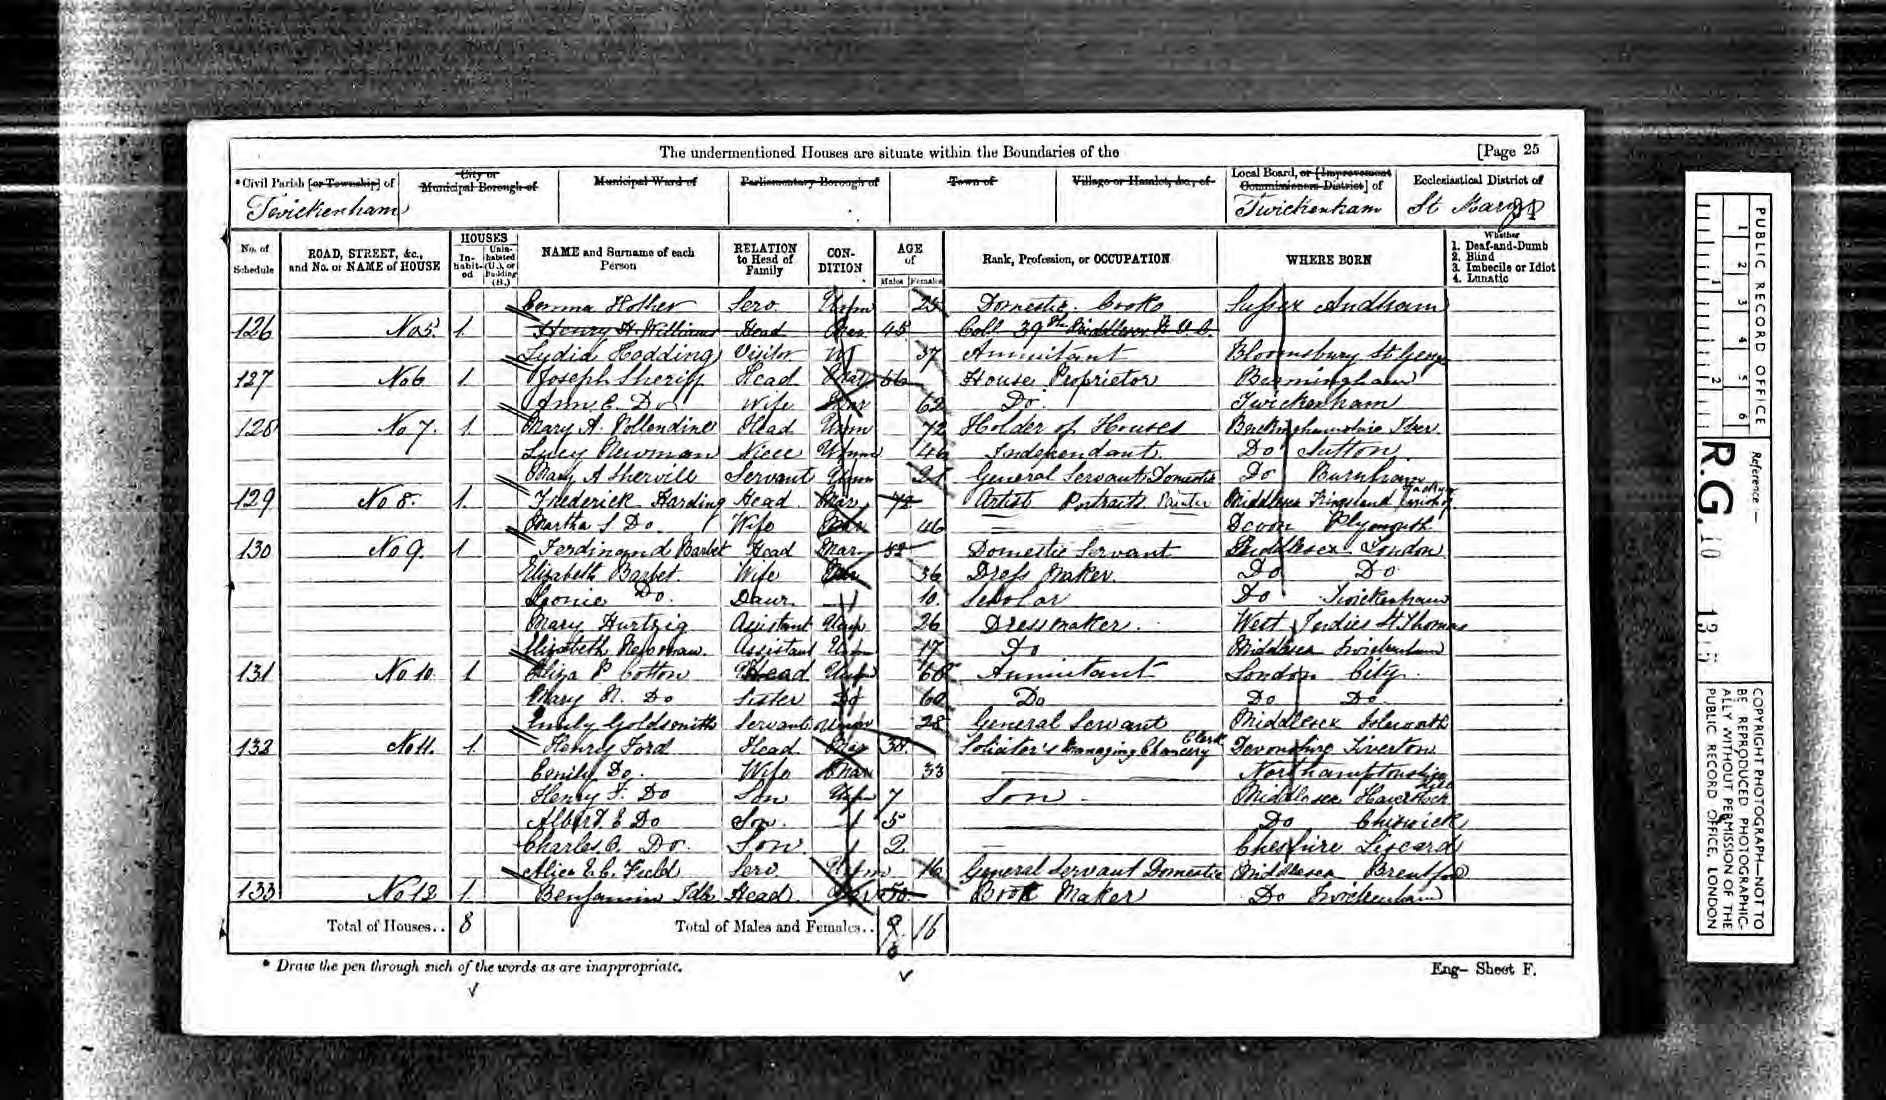 The undermentioned Houses are situate within the Boundaries of the [Page 25
* Civil Parish [or Township] of City or Municipal Borough of Municipal Ward of Parliamentary Borough of Town of Village or Hamlet, &c., of Local Board, or [Improvement Commissioners District] of Ecclesiastical District of
Twickenham Twickenham St Mary's
No. of Schedule ROAD, STREET, &c., and No. or NAME of HOUSE HOUSES Inhabited Uninhabited (U.), or Building (B.) NAME and Surname of each Person RELATION to Head of Family CONDITION AGE of Males Females Rank, Profession, or OCCUPATION WHERE BORN Whether 1. Deaf-and-Dumb 2. Blind 3. Imbecile or Idiot 4. Lunatic
Emma Serv. Unm 25 Domestic Cook Sussex
126 No 5. 1 Henry H. Williams Head 45 39th Middlesex
Lydia Hodding Visitor W 37 Annuitant Bloomsbury St George
127 No 6 1 Joseph Sheriff Head Mar 66 House Proprietor Birmingham
Ann E. Do Wife Mar 62 Do Twickenham
128 No 7. 1 Mary A. Head Unm 72 Holder of Houses Buckinghamshire Iver
Lucy Newman Niece Unm 46 Independant Do Sutton
Mary A Shervill Servant Unm 21 General Servant Domestic Do Burnham
129 No 8. 1. Frederick Harding Head Mar 72 Artist Portraits Painter Middlesex Kingsland
Martha S. Do. Wife Mar 46 Devon Plymouth
130 No 9. 1 Ferdinand Barbet Head Mar 52 Domestic Servant Middlesex London
Elizabeth Barbet. Wife Mar 36 Dress Maker. Do Do
Leonie Do. Daur. 10. Scholar Do Twickenham
Mary Hurtzig Assistant Unm 26 Dressmaker. West Indies St Thomas
Elizabeth Newman. Assistant Unm 17 Do Middlesex Twickenham
131 No 10 1 Eliza P Cotton Head Unm 68 Annuitant London City.
Mary N. Do Sister Do 60 Do Do Do.
Emily Goldsmith Servant Unm 28 General Servant Middlesex Isleworth
132 No 11. 1. Henry Ford Head. Mar 38 Solicitor's Managing Chancery Clerk Devonshire Tiverton
Emily Do. Wife Mar 33 Northamptonshire
Henry F. Do Son Unm 7 Son Middlesex Haverstock Hill
Albert E Do Son. 5 Do Chiswick
Charles O. Do. Son 2 Cheshire Liscard
Alice E C. Field Serv Unm 16 General Servant Domestic Middlesex Brentford
133 No 12 1. Benjamin Head. Mar 50 Boot Maker Do Twickenham
Total of Houses.. 8 Total of Males and Females.. 9 16
* Draw the pen through such of the words as are inappropriate. Eng- Sheet F.
PUBLIC RECORD OFFICE
1 2 3 4 5 6
1 2
Reference :-
R.G. 10
COPYRIGHT PHOTOGRAPH—NOT TO BE REPRODUCED PHOTOGRAPHICALLY WITHOUT PERMISSION OF THE PUBLIC RECORD OFFICE, LONDON